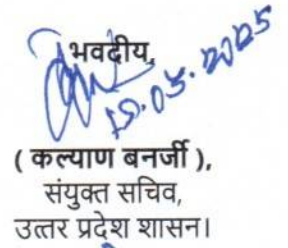 भवदीय,
19.03.2025
( कल्याण बनर्जी ),
संयुक्त सचिव,
उत्तर प्रदेश शासन।